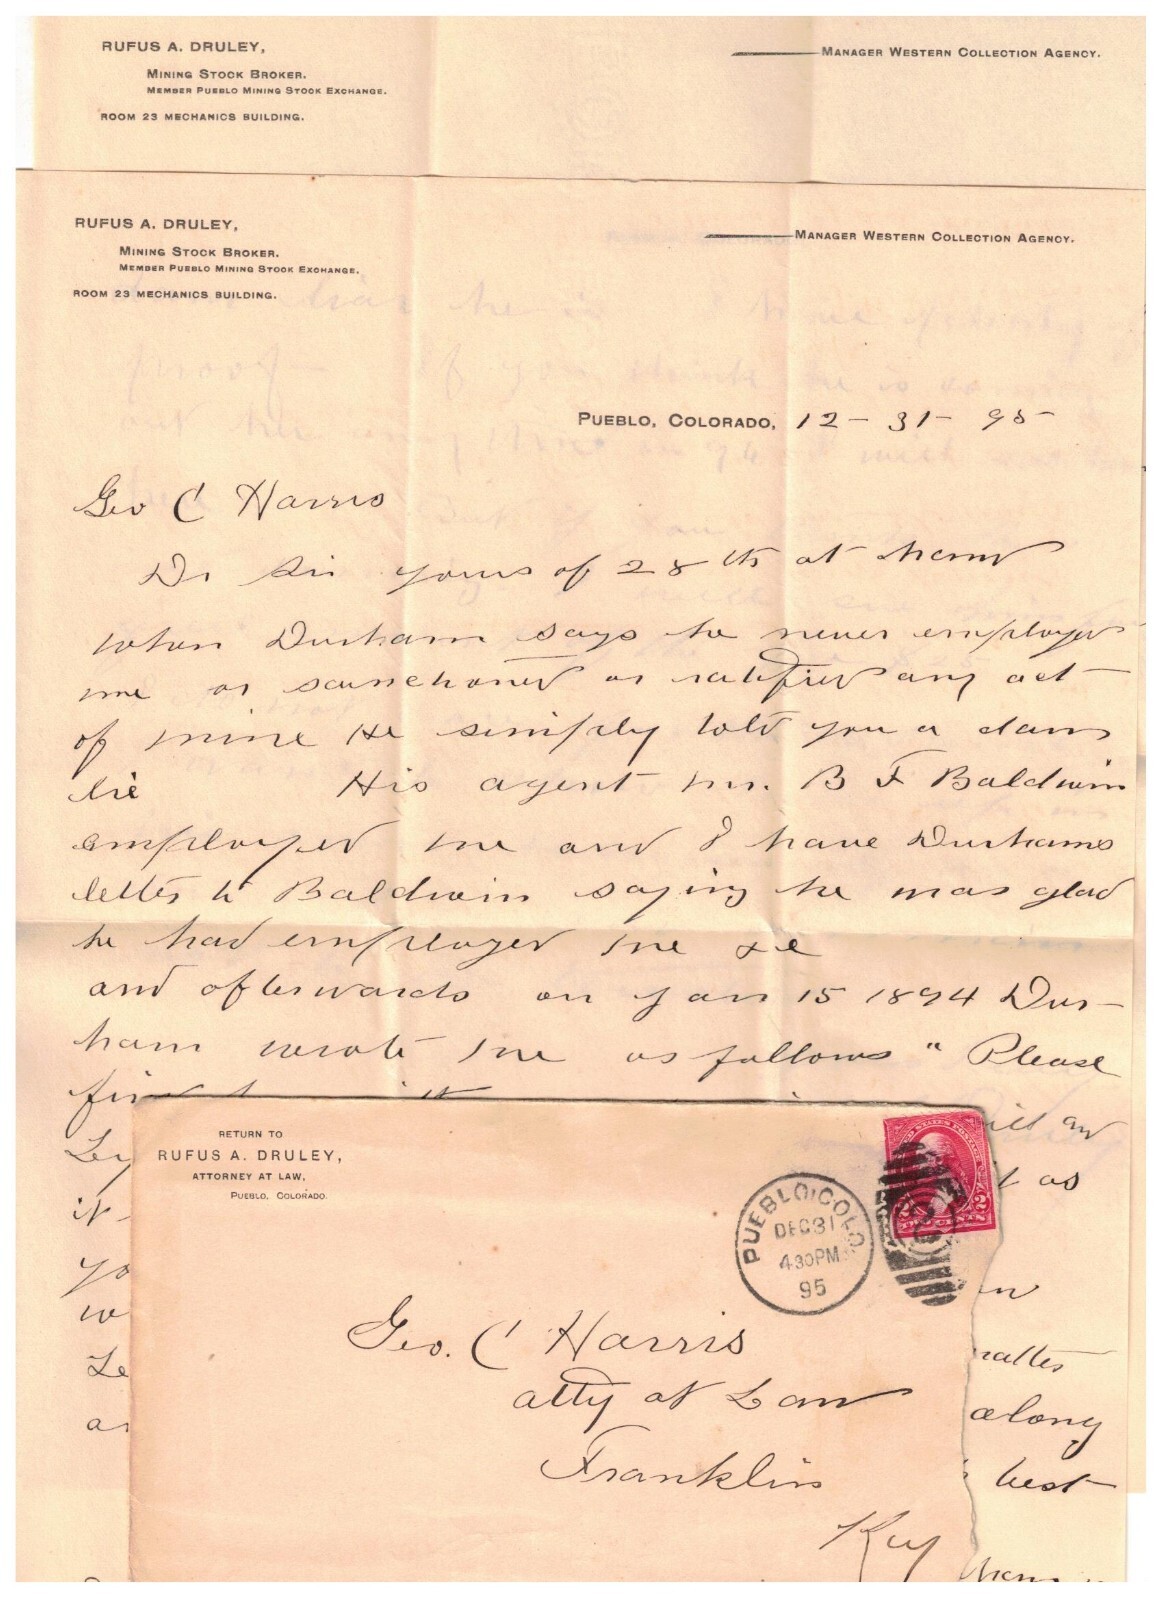 RUFUS A. DRULEY,
MANAGER WESTERN COLLECTION AGENCY.
MINING STOCK BROKER.
MEMBER PUEBLO MINING STOCK EXCHANGE.
ROOM 23 MECHANICS BUILDING.
RUFUS A. DRULEY,
MANAGER WESTERN COLLECTION AGENCY.
MINING STOCK BROKER.
MEMBER PUEBLO MINING STOCK EXCHANGE.
ROOM 23 MECHANICS BUILDING.
PUEBLO, COLORADO, 12-31-95
Geo C Harris
Dr Sir yours of 28th at hand
When Durham says he never employed
me or sanctioned or ratified any act
of mine He simply told you a dam
lie His agent Mr. B F Baldwin
employed me and I have Durhams
letter to Baldwin saying he was glad
he had employed me &c
and afterwards on Jan 15 1894 Dur-
ham wrote me as follows "Please
as
it
yo
w
Le
matter
along
best
RETURN TO
RUFUS A. DRULEY,
ATTORNEY AT LAW,
PUEBLO, COLORADO.
PUEBLO, COLO.
DEC 31
430PM
95
UNITED STATES POSTAGE
2 2
TWO CENTS
Geo. C Harris
atty at Law
Franklin
Ky